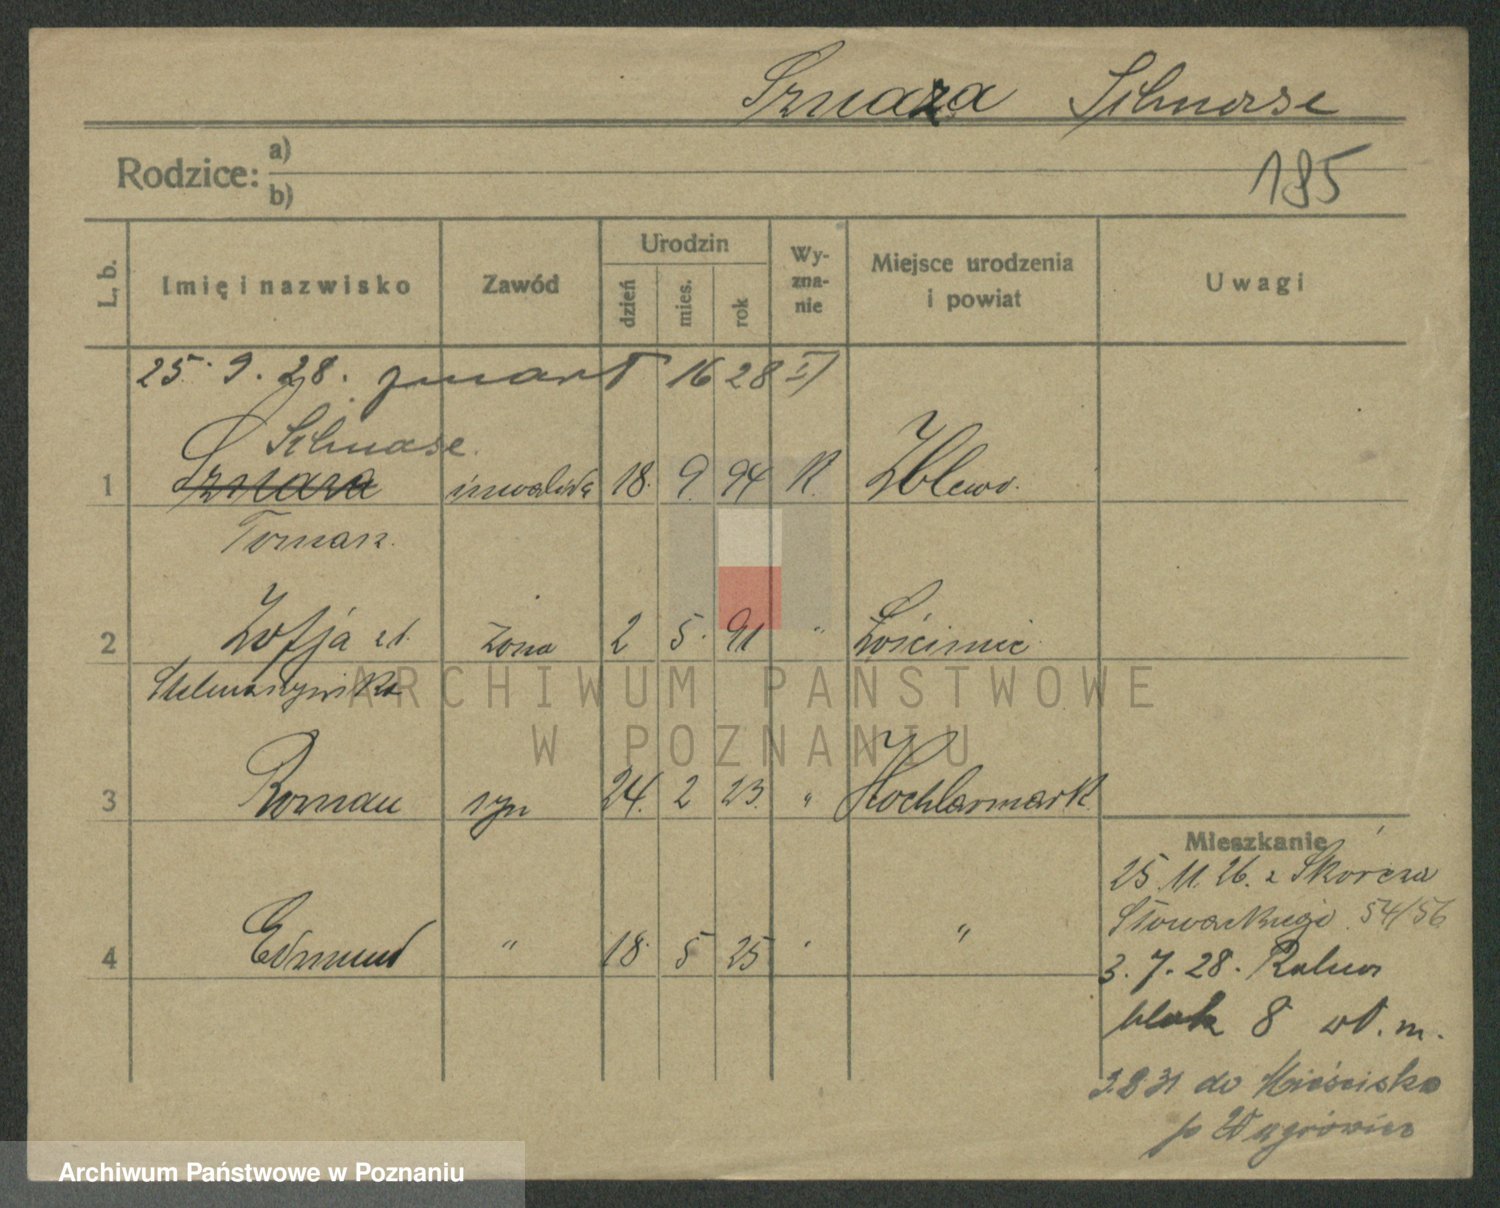 Sznaza Schnase
185
Rodzice: a)
b)
L. b. Imię i nazwisko Zawód Urodzin dzień mies. rok Wy-zna-nie Miejsce urodzenia i powiat Uwagi
25. 9. 28. zmarł 16 28 II
Schnase
1 Sznaza inwalida 18. 9. 94 K. Zblewo.
Tomasz.
2 Zofja zd. żona 2 5. 91 " Łościmic
3 Roman syn 24. 2 23. " Hochlarmark
4 Edmund " 18 5 25 " "
Mieszkanie
25. 11. 26. z Skórcza
Słowackiego 54/56
3. 7. 28.
blok 8 wł. m.
3.8 31 do Mieścisko
p Wągrówiec
ARCHIWUM PAŃSTWOWE
W POZNANIU
Archiwum Państwowe w Poznaniu